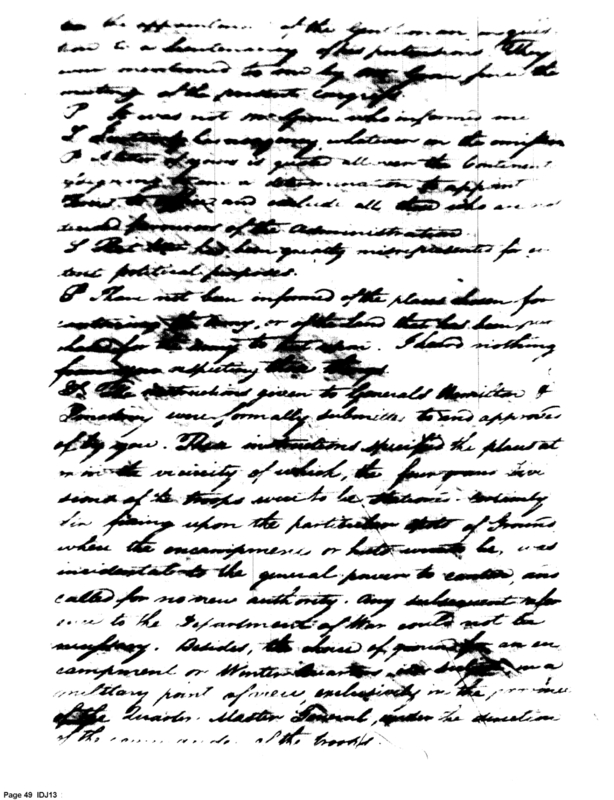 the appointment of the Gentleman in ques
tion to a lieutenancy of his pretensions. They
were mentioned to me by Mr Gove since the
meeting of the present congress
P It was not Mr Gove who informed me
I had no agency whatever in the omission
P A letter of yours is quoted all over the Continent
a determination to appoint
and exclude all those who are not
favourers of the Administration.
I That has been greatly misrepresented for
political purposes.
P I have not been informed of the places chosen for
cantoning the Army, or of the land that has been pur
chased for the Army to this hour. I heard nothing
from you respecting these things.
The instructions given to Generals Hamilton &
Pinckney were formally submitted to and approved
of by you. These instructions specified the places at
or in the vicinity of which, the four grand divi
sions of the troops were to be stationed.
fixing upon the particular spots of Ground
where the encampments or huts would be, was
incidental to the general power to canton, and
called for no new authority. Any subsequent refer
ence to the Department of War could not be
necessary. Besides, the choice of ground for an en
campment or Winter Quarters in a
military point of view exclusively in the province
of the Quarter Master General, under the direction
of the of the troops.
Page 49 IDJ13